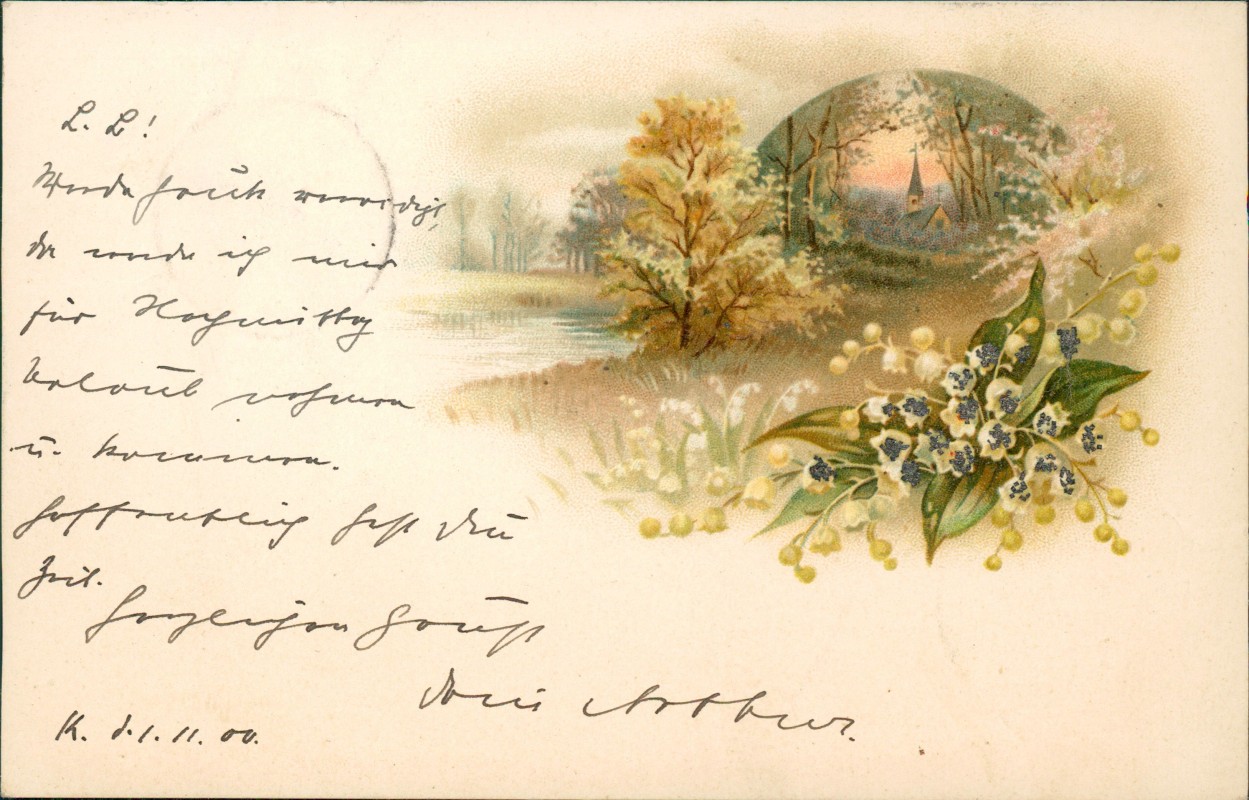 L. L!
Werde heut vereidigt,
da werde ich mir
für Nachmittag
Urlaub nehmen
u. kommen.
Hoffentlich hast Du
Zeit.
Herzlichen Gruß
Dein Arthur.
K. d. 1. 11. 00.